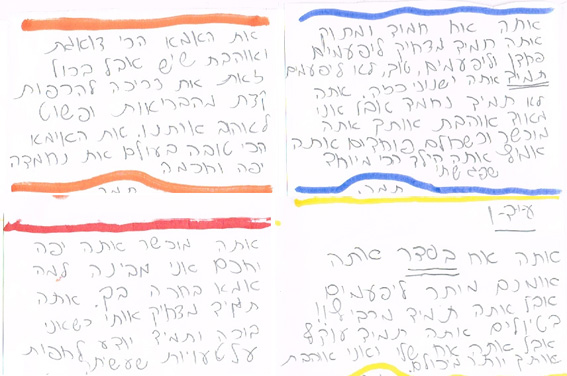 אתה אח חמיד ומתוק
אתה תמיד מצחיק ליפעמים
פחדן וליפעמים, טוב, לא ליפעמים
תמיד אתה ושנוני אתה
לא תמיד נחמד אני
מאוד אוהבת אותך אתה
מוכשר וכשכולם פוחדים אתה
אמיץ אתה הילד הכי מיוחד
שפגשתי
תמר.
את האמא הכי דואגת
ואוהבת שיש אבל בכול
זאת את צריכה להרפות
קצת מהבריאות ופשוט
לאהוב אותנו. את האימא
הכי טובה בעולם את נחמדה
יפה וחכמה
תמר
אתה אח בסדר אתה
אומנם ליפעמים
אבל אתה תמיד
בטיולים אתה תמיד
אבל אתה אח שלי ואני אוהבת
אותך יותר מכולם.
אתה מוכשר אתה יפה
וחכם אני מבינה למה
אמא בחרה בך. אתה
תמיד מצחיק אותי כשאני
בוכה ותמיד יודע לחפות
על טעויות